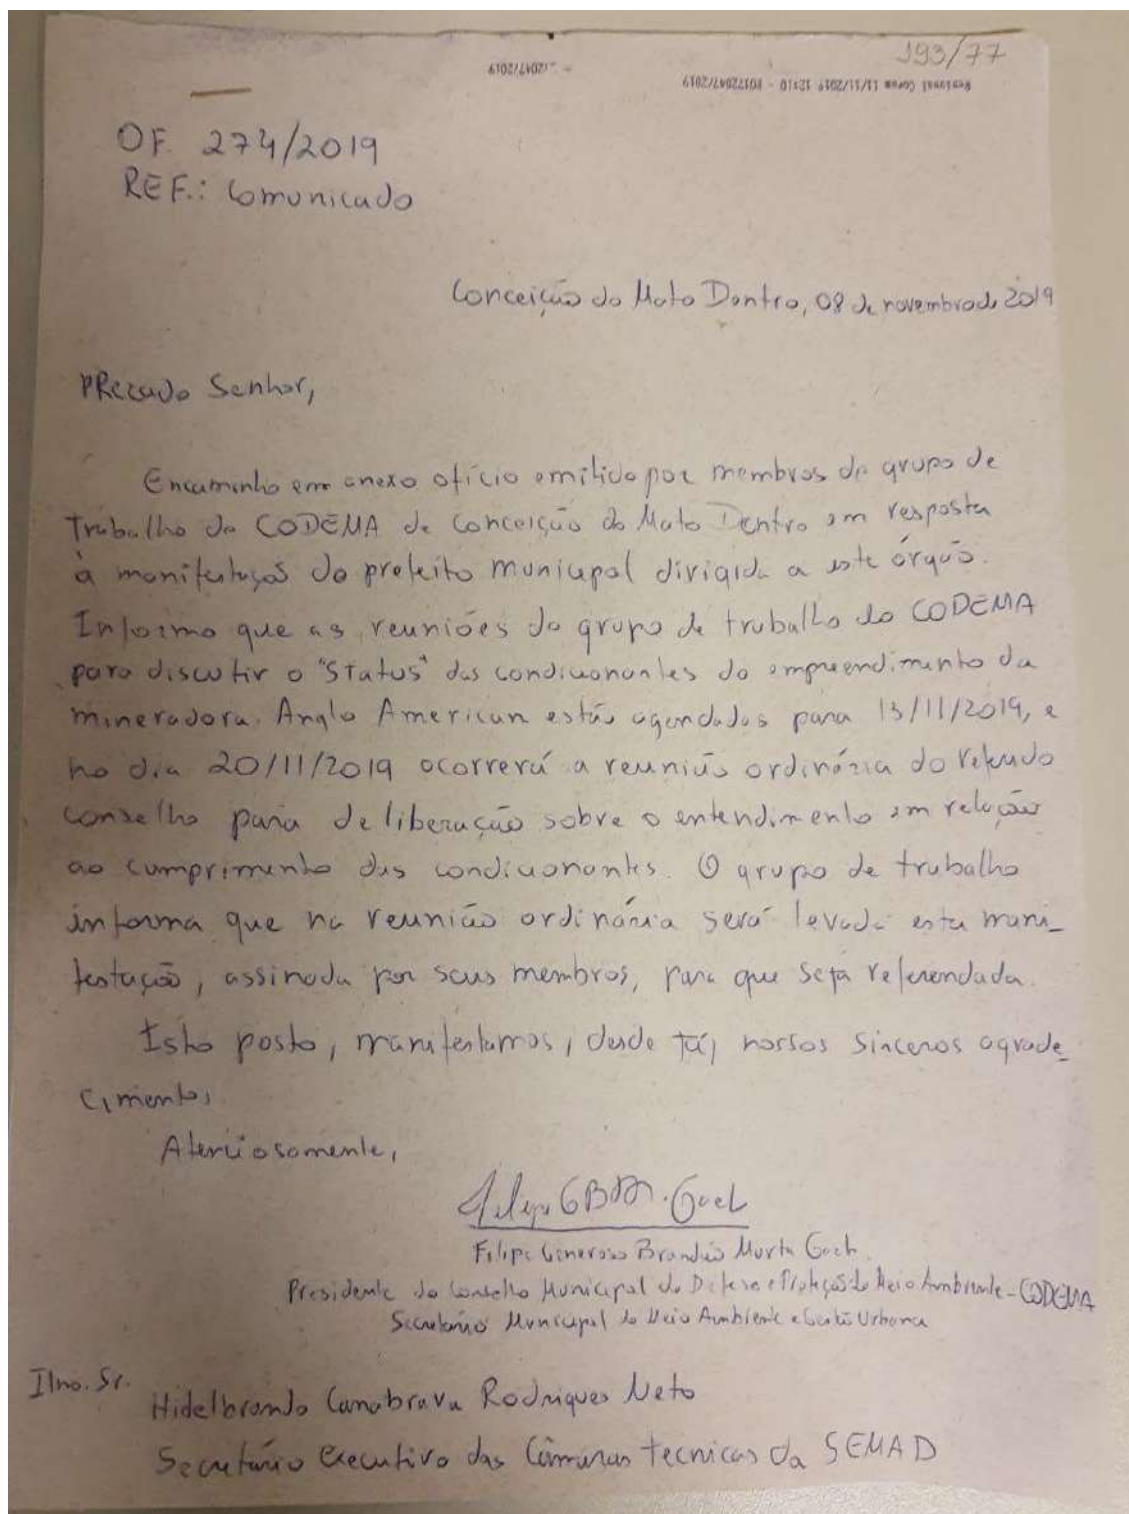 193/77
Regional Copam 11/11/2019 12:10 - R0172047/2019
2047/2019
OF. 274/2019
REF.: Comunicado
Conceição do Mato Dentro, 08 de novembro de 2019
PRezado Senhor,
Encaminho em anexo ofício emitido por membros do grupo de
Trabalho do CODEMA de Conceição do Mato Dentro em resposta
à manifestação do prefeito municipal dirigida a este órgão.
Informo que as reuniões do grupo de trabalho do CODEMA
para discutir o "Status" das condicionantes do empreendimento da
mineradora Anglo American estão agendadas para 13/11/2019, e
no dia 20/11/2019 ocorrerá a reunião ordinária do referido
conselho para deliberação sobre o entendimento em relação
ao cumprimento das condicionantes. O grupo de trabalho
informa que na reunião ordinária será levada esta mani_
festação, assinada por seus membros, para que seja referendada.
Isto posto, manifestamos, desde já, nossos sinceros agrade_
cimentos
Atenciosamente,
Filipe Generoso Brandão Murta Gaeh
Presidente do Conselho Municipal de Defesa e Proteção do Meio Ambiente - CODEMA
Secretário Municipal de Meio Ambiente e Gestão Urbana
Ilmo. Sr.
Hidelbrando Canabrava Rodrigues Neto
Secretário Executivo das Câmaras Tecnicas da SEMAD